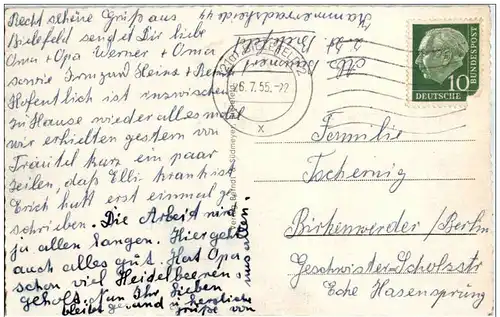 Recht schöne Grüße aus
Bielefeld sendet Dir liebe
Oma + Opa Werner + Oma
sowie Irmgard Heinz +
Hofentlich ist inzwischen
zu Hause wieder alles wohl
wir erhielten gestern von
Träutel kurz ein paar
Zeilen, daß Elli krank ist
Erich hatt erst einmal ge
schrieben. Die Arbeit wird
zu allen langen. Hier geht
auch alles gut. Hat Opa
schon viel Heidelbeeren
geholt. Nun Ihr Lieben
bleibt gesund u. herzliche
Grüße von
uns allen.
Abs.
Bielefeld
Hammeradheide 44
BIELEFELD 2
-6.7.55.-22
x
DEUTSCHE
BUNDESPOST
10
Familie
Tschernig
Birkenwerder / Berlin
Geschwister-Scholstr
Ecke Hasensprung